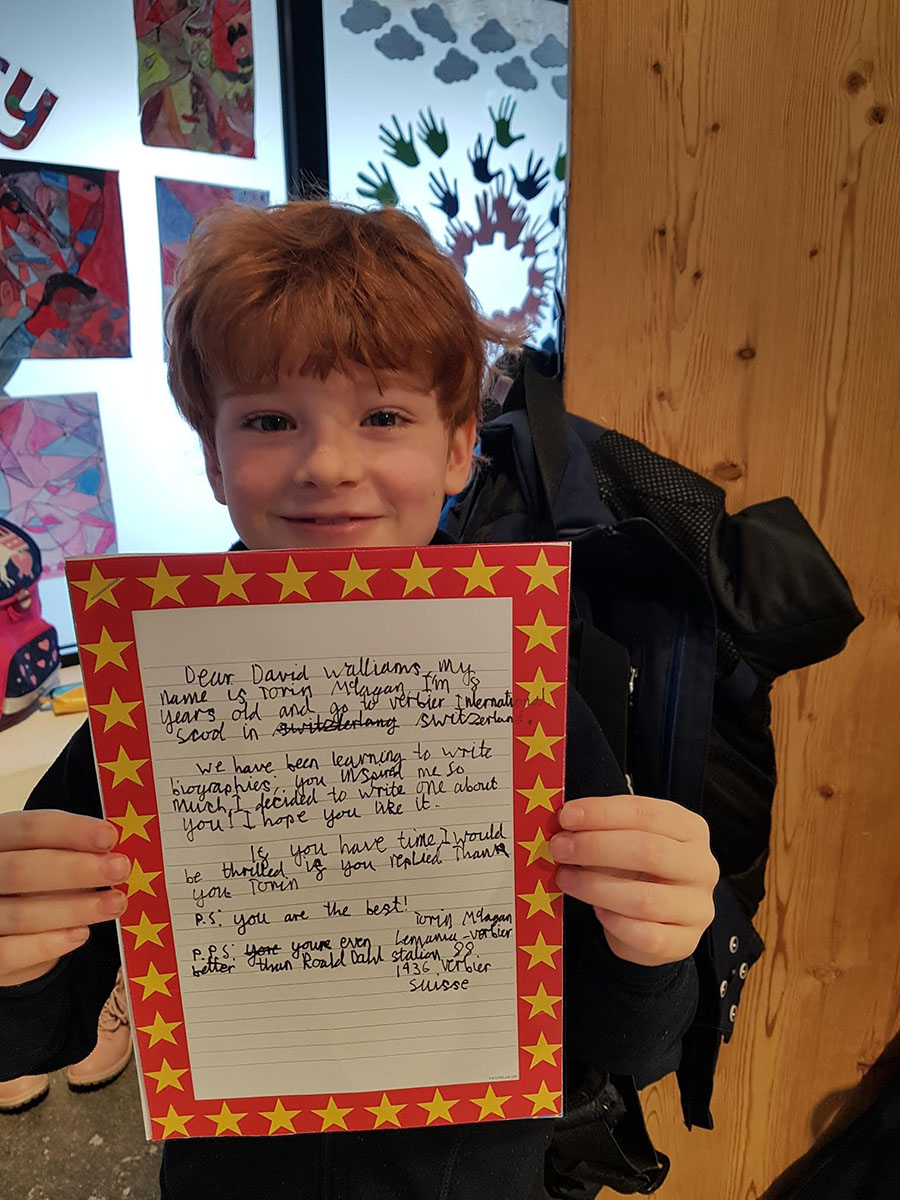 ry
Dear David Walliams My
name is Torin McLagan I'm 8
years old and go to verbier International
scool in switzterlang switzerland.
We have been learning to write
biographies, you inspired me so
much I decided to write one about
you! I hope you like it.
If you have time I would
be thrilled if you replied Thank
you Torin
P.S: you are the best!
P.P.S: your youre even
better than Roald Dahl
Torin McLagan
Lemania-verbier
station 88
1936, verbier
Suisse